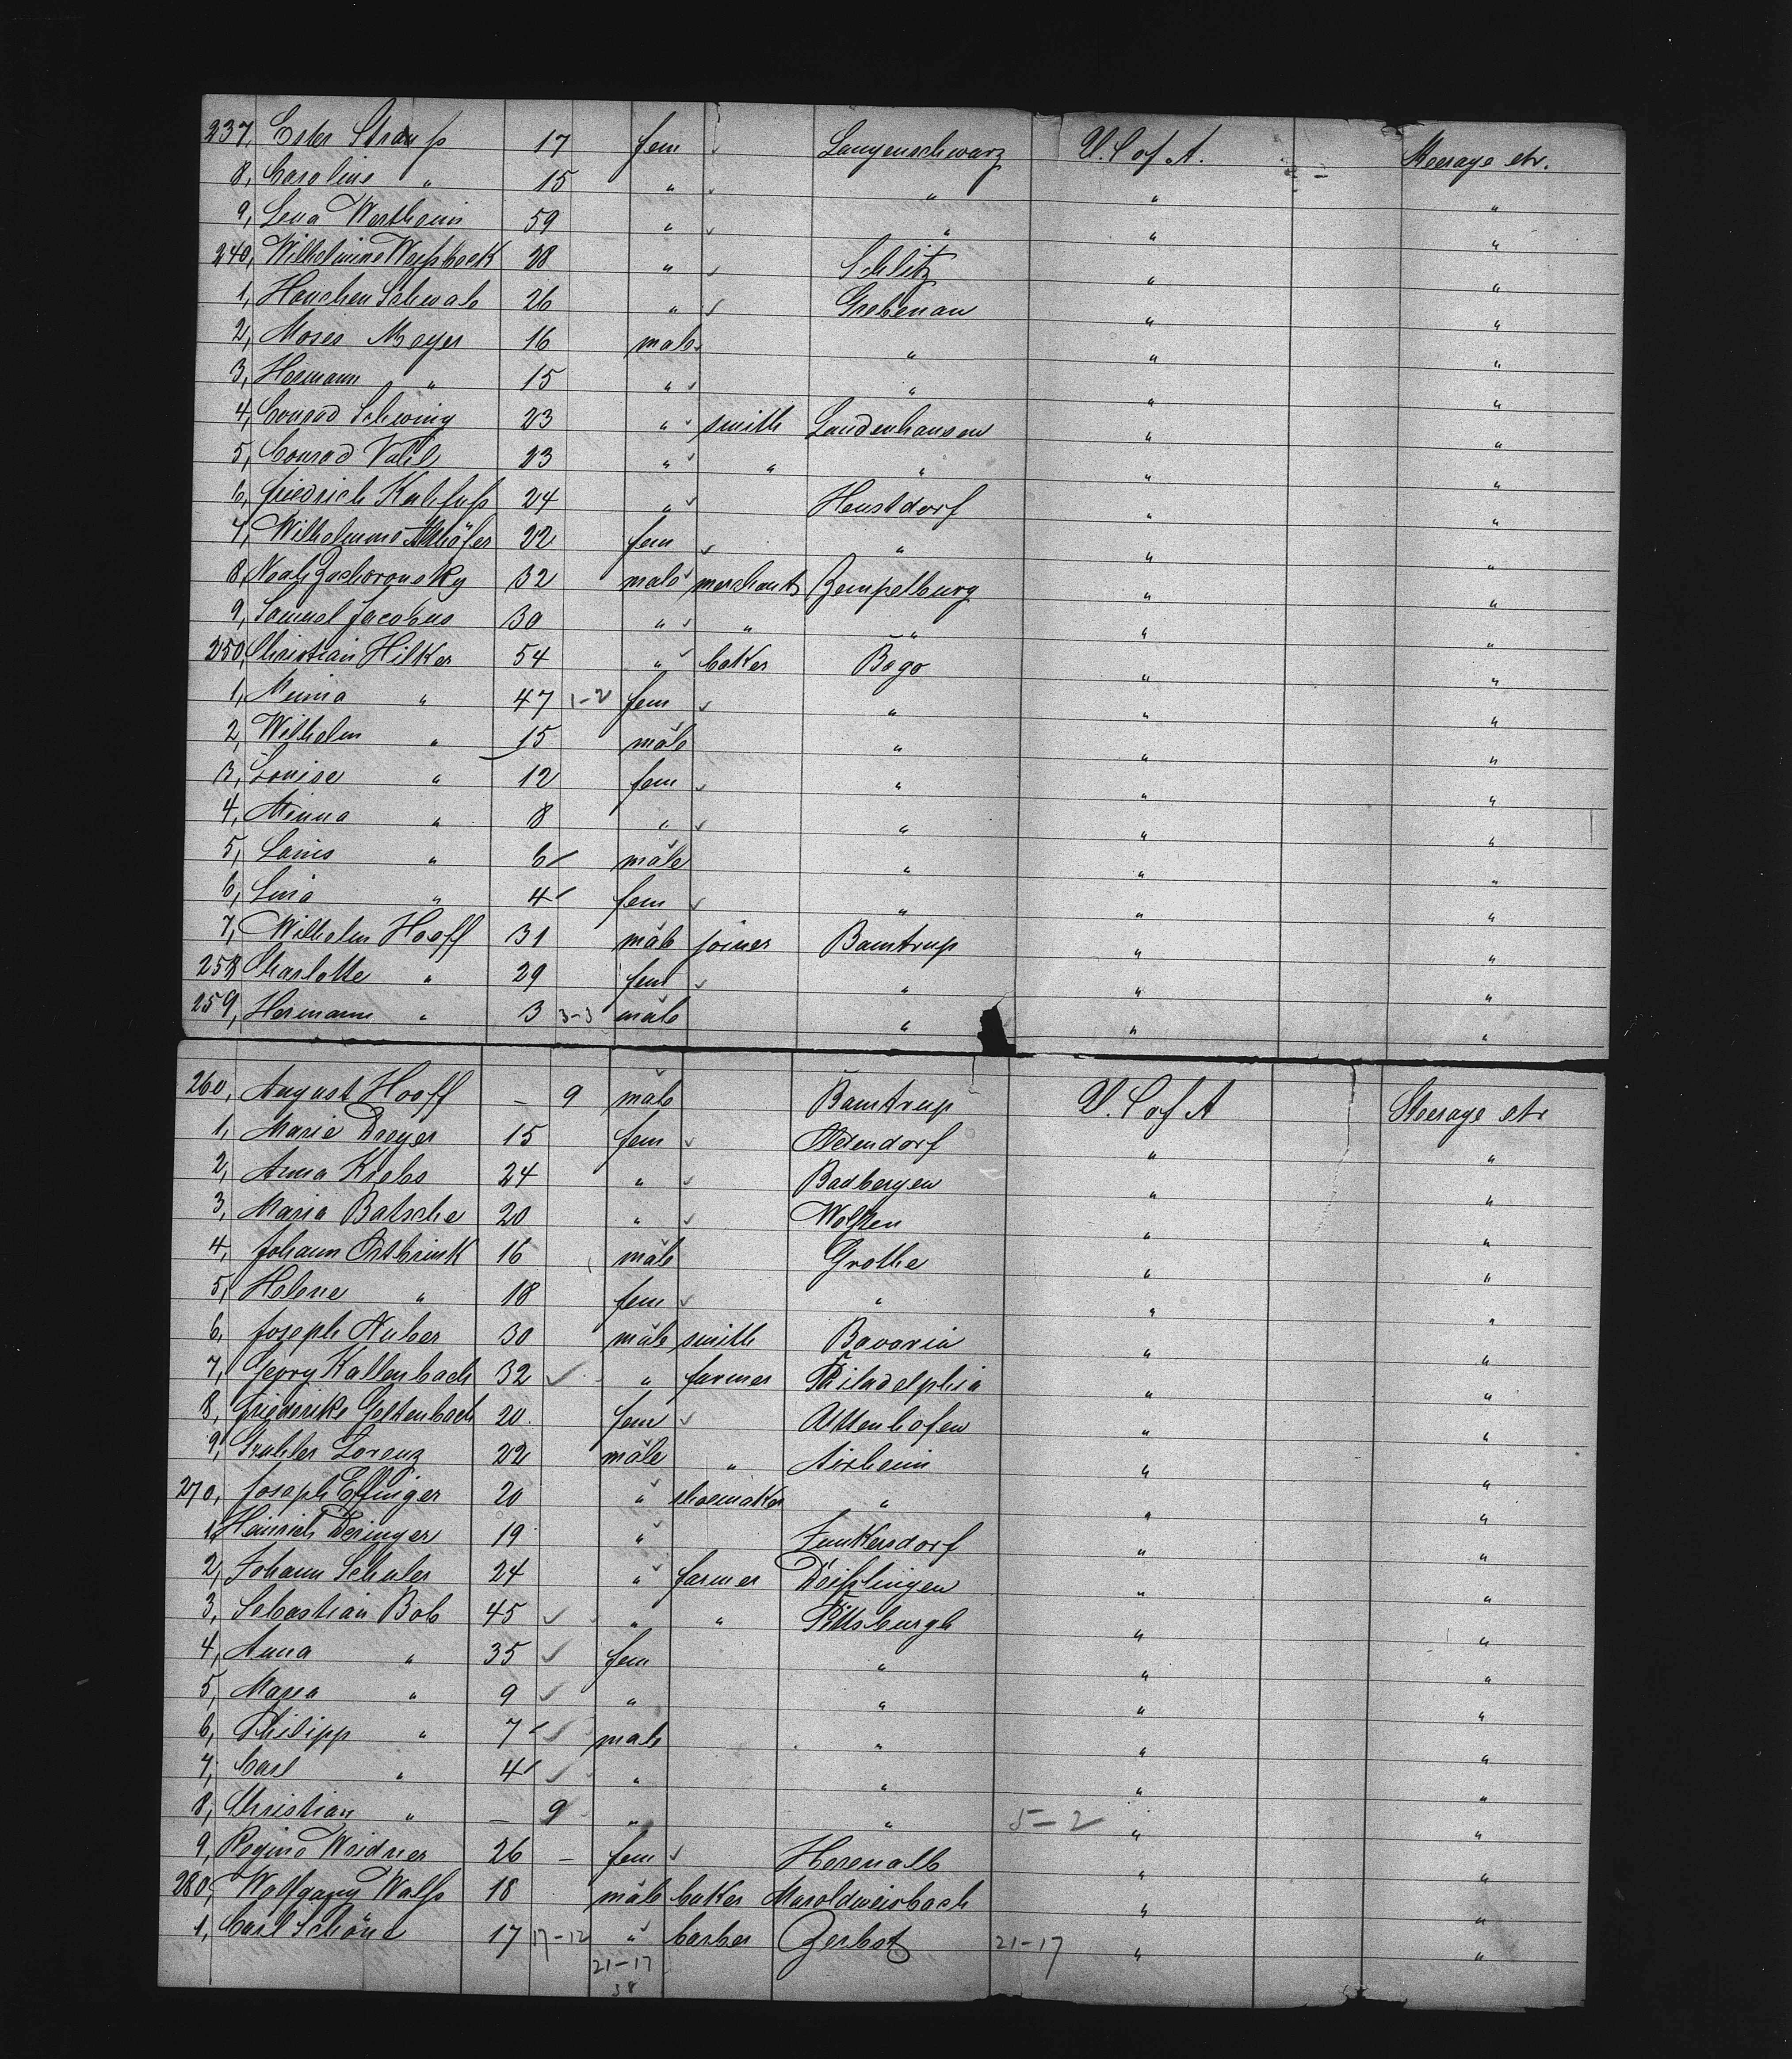 237, Ester Strauß 17 fem ✓ Langenschwarz U. S. of A. Steerage etr.
8, Caroline " 15 " ✓ " " "
9, Lena Wertheim 59 " ✓ " " "
240, Wilhelmine 28 " ✓ Schlitz " "
1, Hanchen Schwab 26 " ✓ Grebenau " "
2, Moses Meyer 16 male " " "
3, Hermann " 15 " ✓ " " "
4, Conrad Schwing 23 " ✓ smith Landenhausen " "
5, Conrad Vahl 23 " ✓ " " " "
6, Friedrich Kahlfuß 24 " ✓ Heustdorf " "
7, Wilhelmine 22 fem ✓ " " "
8, Noah 32 male ✓ merchant Zempelburg " "
9, Samuel Jacobus 30 " ✓ " " " "
250, Christian Hilker 54 " ✓ baker Bega " "
1, Minna " 47 1-2 fem ✓ " " "
2, Wilhelm " 15 male " " "
3, Louise " 12 fem ✓ " " "
4, Minna " 8 " ✓ " " "
5, Louis " 6 male " " "
6, Lina " 4 fem ✓ " " "
7, Wilhelm Hooff 31 male joiner Barntrup " "
258, Charlotte " 29 fem ✓ " " "
259, Hermann " 3 3-3 male " " "
260, August Hooff — 9 male Barntrup U. S. of A Steerage etr
1, Marie Dreyer 15 fem ✓ " "
2, Anna Krebs 24 " ✓ Badbergen " "
3, Maria Batsche 20 " ✓ " "
4, Johann Ostbrink 16 male Grothe " "
5, Helene " 18 fem ✓ " " "
6, Joseph Huber 30 male smith Bavaria " "
7, Georg Kallenbach 32 ✓ " farmer Philadelphia " "
8, Friederike Geltenbach 20 fem ✓ Attenhofen " "
9, Lorenz 22 male " Aixheim " "
270, Joseph Effinger 20 " shoemaker " " "
1, Heinrich Deringer 19 " Junkersdorf " "
2, Johann Schuler 24 " farmer Deißlingen " "
3, Sebastian Bob 45 ✓ " " Pittsburgh " "
4, Anna " 35 ✓ fem " " "
5, Maria " 9 ✓ " " " "
6, Philipp " 7 ✓ male " " "
7, Carl " 4 ✓ " " " "
8, Christian " — 9 " " 5-2 " "
9, Regine Weidner 26 — fem ✓ Herenalb " "
280, Wolfgang Walß 18 male baker Maroldweisbach " "
1, Carl Schöne 17 17-12 " barber Zerbst 21-17 " "
21-17
38